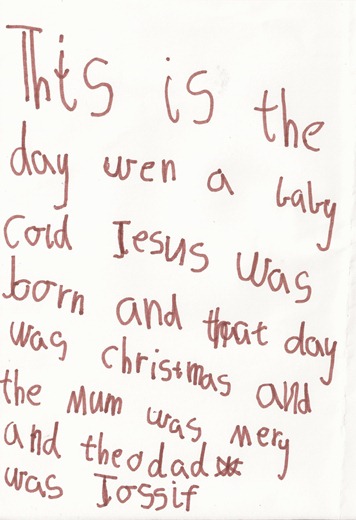 This is the
day wen a baby
Cold Jesus was
born and that day
was christmas and
the mum was mery
and the dad
was Jossif